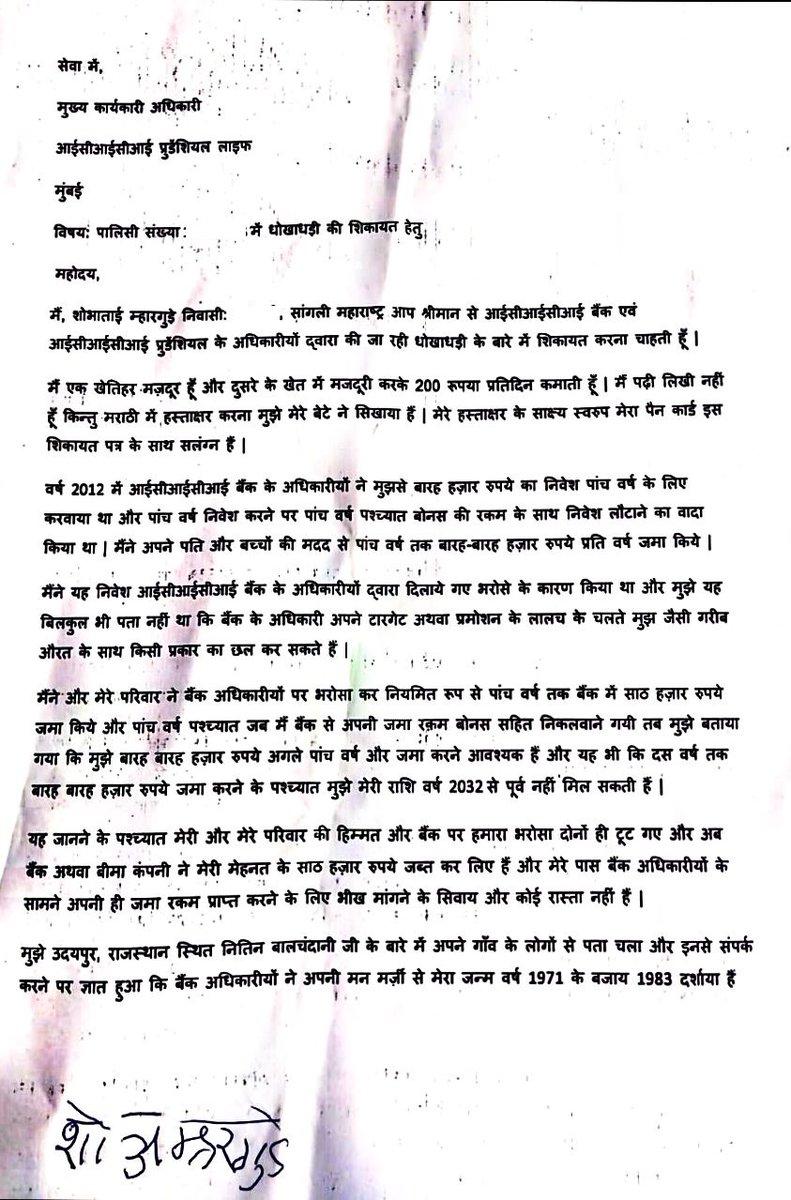 सेवा में,
मुख्य कार्यकारी अधिकारी
आईसीआईसीआई प्रुडेंशियल लाइफ
मुंबई
विषय: पालिसी संख्या: में धोखाधड़ी की शिकायत हेतु
महोदय,
मैं, शोभाताई म्हारगुडे निवासी: , सांगली महाराष्ट्र आप श्रीमान से आईसीआईसीआई बैंक एवं
आईसीआईसीआई प्रुडेंशियल के अधिकारीयों द्वारा की जा रही धोखाधड़ी के बारे में शिकायत करना चाहती हूँ |
मैं एक खेतिहर मज़दूर हूँ और दुसरे के खेत में मजदूरी करके 200 रुपया प्रतिदिन कमाती हूँ | मैं पढ़ी लिखी नहीं
हूँ किन्तु मराठी में हस्ताक्षर करना मुझे मेरे बेटे ने सिखाया हैं | मेरे हस्ताक्षर के साक्ष्य स्वरुप मेरा पैन कार्ड इस
शिकायत पत्र के साथ सलंग्न हैं |
वर्ष 2012 में आईसीआईसीआई बैंक के अधिकारीयों ने मुझसे बारह हज़ार रुपये का निवेश पांच वर्ष के लिए
करवाया था और पांच वर्ष निवेश करने पर पांच वर्ष पश्च्यात बोनस की रकम के साथ निवेश लौटाने का वादा
किया था | मैंने अपने पति और बच्चों की मदद से पांच वर्ष तक बारह-बारह हज़ार रुपये प्रति वर्ष जमा किये |
मैंने यह निवेश आईसीआईसीआई बैंक के अधिकारीयों द्वारा दिलाये गए भरोसे के कारण किया था और मुझे यह
बिलकुल भी पता नहीं था कि बैंक के अधिकारी अपने टारगेट अथवा प्रमोशन के लालच के चलते मुझ जैसी गरीब
औरत के साथ किसी प्रकार का छल कर सकते हैं |
मैंने और मेरे परिवार ने बैंक अधिकारीयों पर भरोसा कर नियमित रूप से पांच वर्ष तक बैंक में साठ हज़ार रुपये
जमा किये और पांच वर्ष पश्च्यात जब मैं बैंक से अपनी जमा रक़म बोनस सहित निकलवाने गयी तब मुझे बताया
गया कि मुझे बारह बारह हज़ार रुपये अगले पांच वर्ष और जमा करने आवश्यक हैं और यह भी कि दस वर्ष तक
बारह बारह हज़ार रुपये जमा करने के पश्च्यात मुझे मेरी राशि वर्ष 2032 से पूर्व नहीं मिल सकती हैं |
यह जानने के पश्च्यात मेरी और मेरे परिवार की हिम्मत और बैंक पर हमारा भरोसा दोनों ही टूट गए और अब
बैंक अथवा बीमा कंपनी ने मेरी मेहनत के साठ हज़ार रुपये जब्त कर लिए हैं और मेरे पास बैंक अधिकारीयों के
सामने अपनी ही जमा रकम प्राप्त करने के लिए भीख मांगने के सिवाय और कोई रास्ता नहीं हैं |
मुझे उदयपुर, राजस्थान स्थित नितिन बालचंदानी जी के बारे में अपने गाँव के लोगों से पता चला और इनसे संपर्क
करने पर ज्ञात हुआ कि बैंक अधिकारीयों ने अपनी मन मर्ज़ी से मेरा जन्म वर्ष 1971 के बजाय 1983 दर्शाया हैं